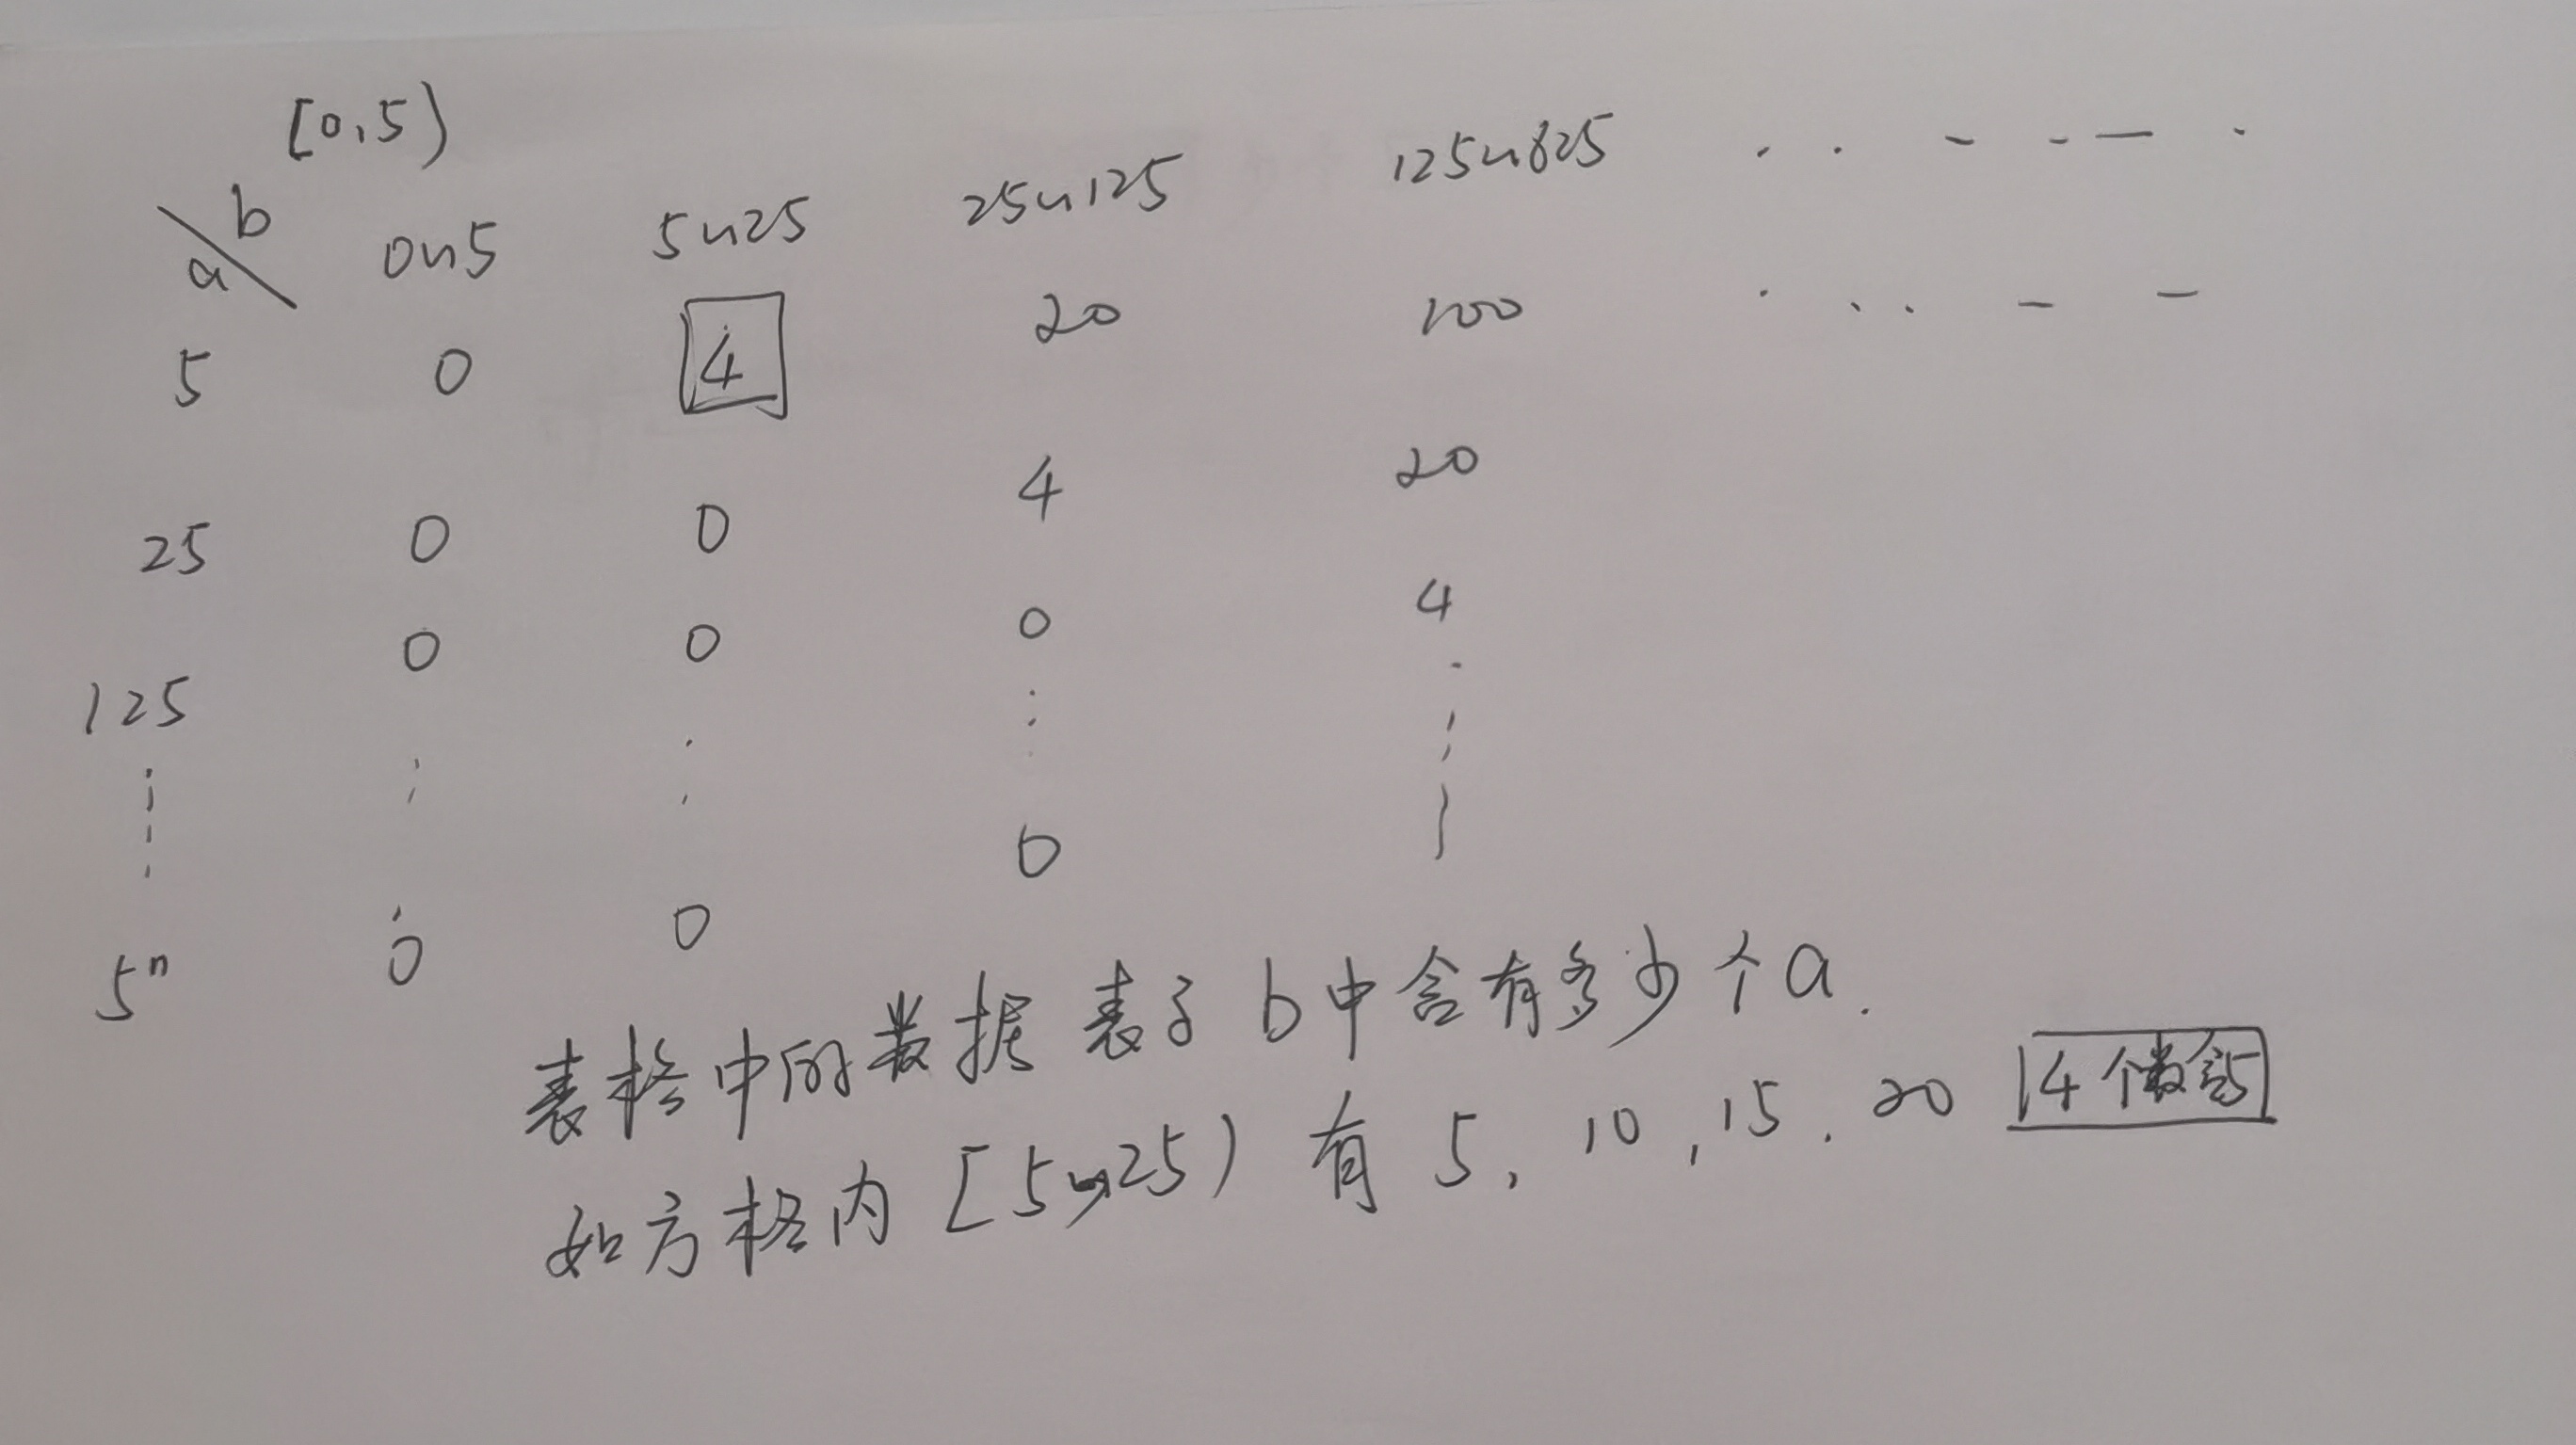 [0,5)
b 0~5 5~25 25~125 125~625
a
5 0 4 20 100
25 0 0 4 20
125 0 0 0 4
5ⁿ 0 0 0
表格中的数据表示b中含有多少个a.
如方格内[5~25)有5,10,15,20 4个数含5